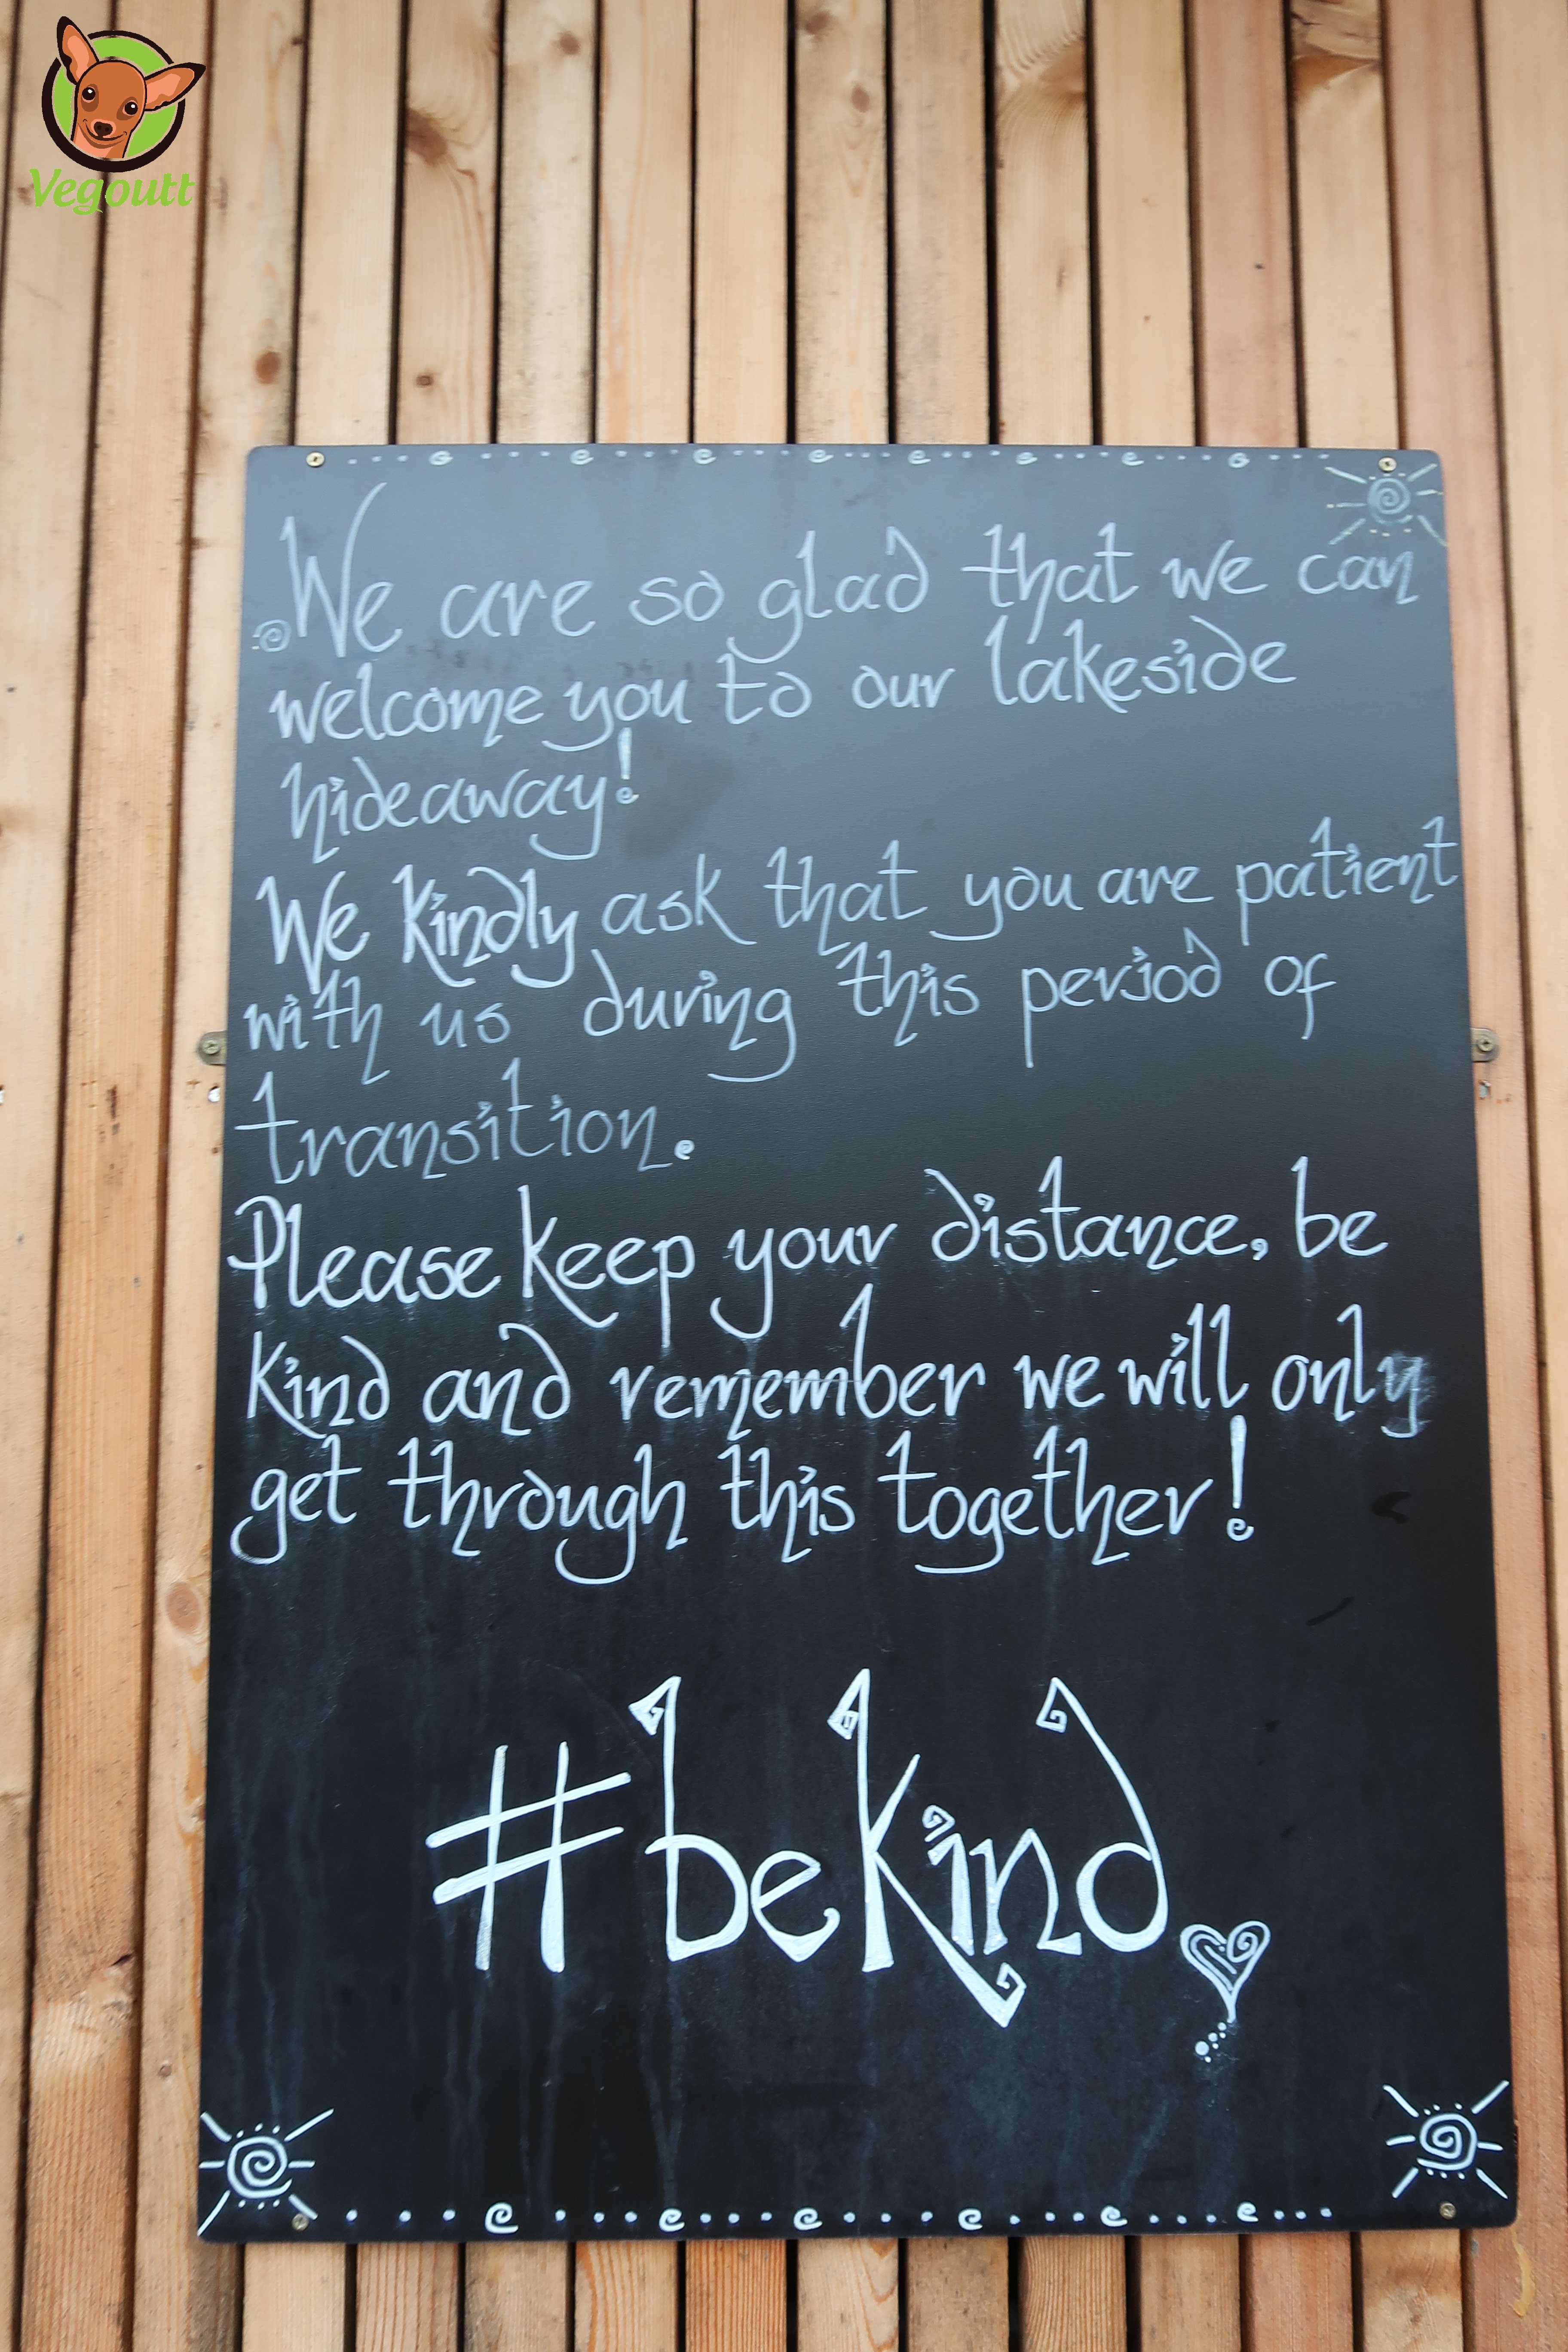 Vegoutt
We are so glad that we can
welcome you to our lakeside
hideaway!
We kindly ask that you are patient
with us during this period of
transition.
Please keep your distance, be
kind and remember we will only
get through this together!
#bekind